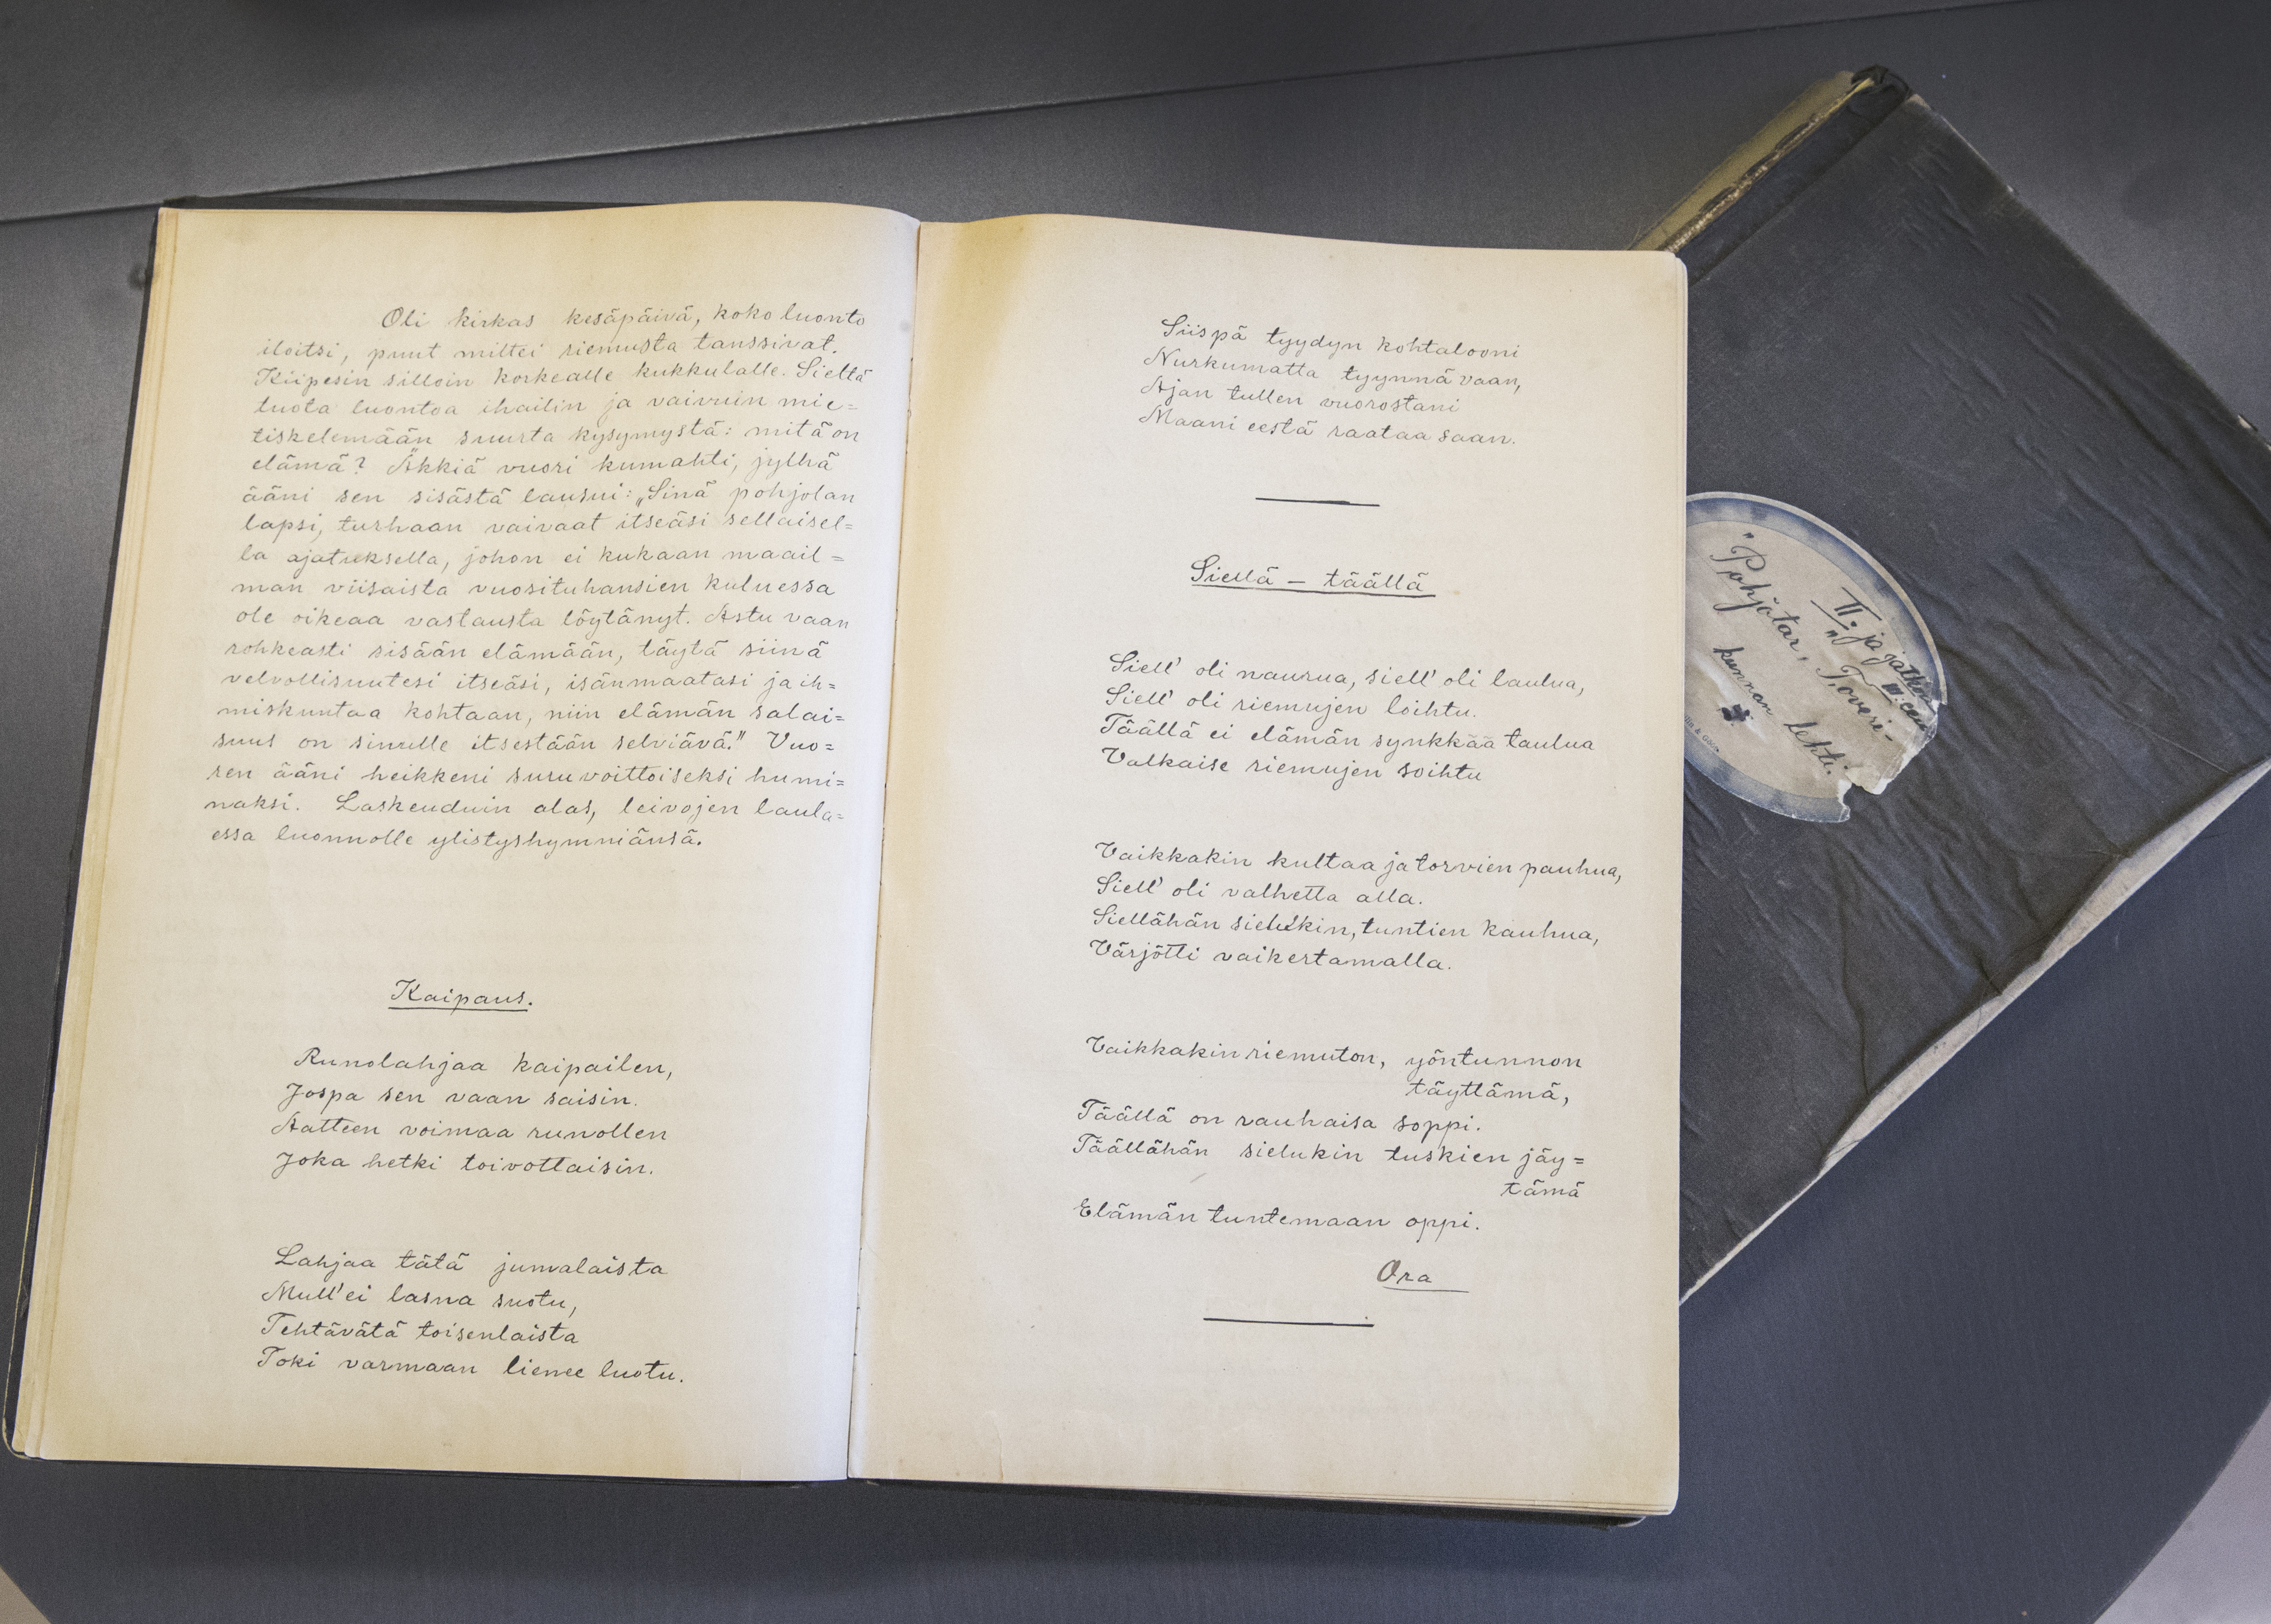 Oli kirkas kesäpäivä, koko luonto
iloitsi, puut miltei riemusta tanssivat.
Kiipesin silloin korkealle kukkulalle. Sieltä
tuota luontoa ihailin ja vaivuin mie=
tiskelemään suurta kysymystä: mitä on
elämä? Äkkiä vuori kumahti, jylhä
ääni sen sisästä lausui: „Sinä pohjolan
lapsi, turhaan vaivaat itseäsi sellaisel=
la ajatuksella, johon ei kukaan maail=
man viisaista vuosituhansien kuluessa
ole oikeaa vastausta löytänyt. Astu vaan
rohkeasti sisään elämään, täytä siinä
velvollisuutesi itseäsi, isänmaatasi ja ih=
miskuntaa kohtaan, niin elämän salai=
suus on sinulle itsestään selviävä." Vuo=
ren ääni heikkeni suruvoittoiseksi humi=
naksi. Laskeuduin alas, leivojen laula=
essa luonnolle ylistyshymniänsä.
Kaipaus.
Runolahjaa kaipailen,
Jospa sen vaan saisin.
Aatteen voimaa runollen
Joka hetki toivottaisin.
Lahjaa tätä jumalaista
Mull' ei lasna suotu,
Tehtävätä toisenlaista
Toki varmaan lienee luotu.
Siispä tyydyn kohtalooni
Nurkumatta tyynnä vaan,
Ajan tullen vuorostani
Maani eestä raataa saan.
Siellä – täällä
Siell' oli naurua, siell' oli laulua,
Siell' oli riemujen loihtu.
Täällä ei elämän synkkää taulua
Valkaise riemujen soihtu
Vaikkakin kultaa ja torvien pauhua,
Siell' oli valhetta alla.
Siellähän sielukin, tuntien kauhua,
Värjötti vaikertamalla.
Vaikkakin riemuton, yöntunnon
täyttämä,
Täällä on rauhaisa soppi.
Täällähän sielukin tuskien jäy=
tämä
Elämän tuntemaan oppi.
Ora
II. ja jatkoa
III:een
"Pohjatar", Toveri-
kunnan lehti.